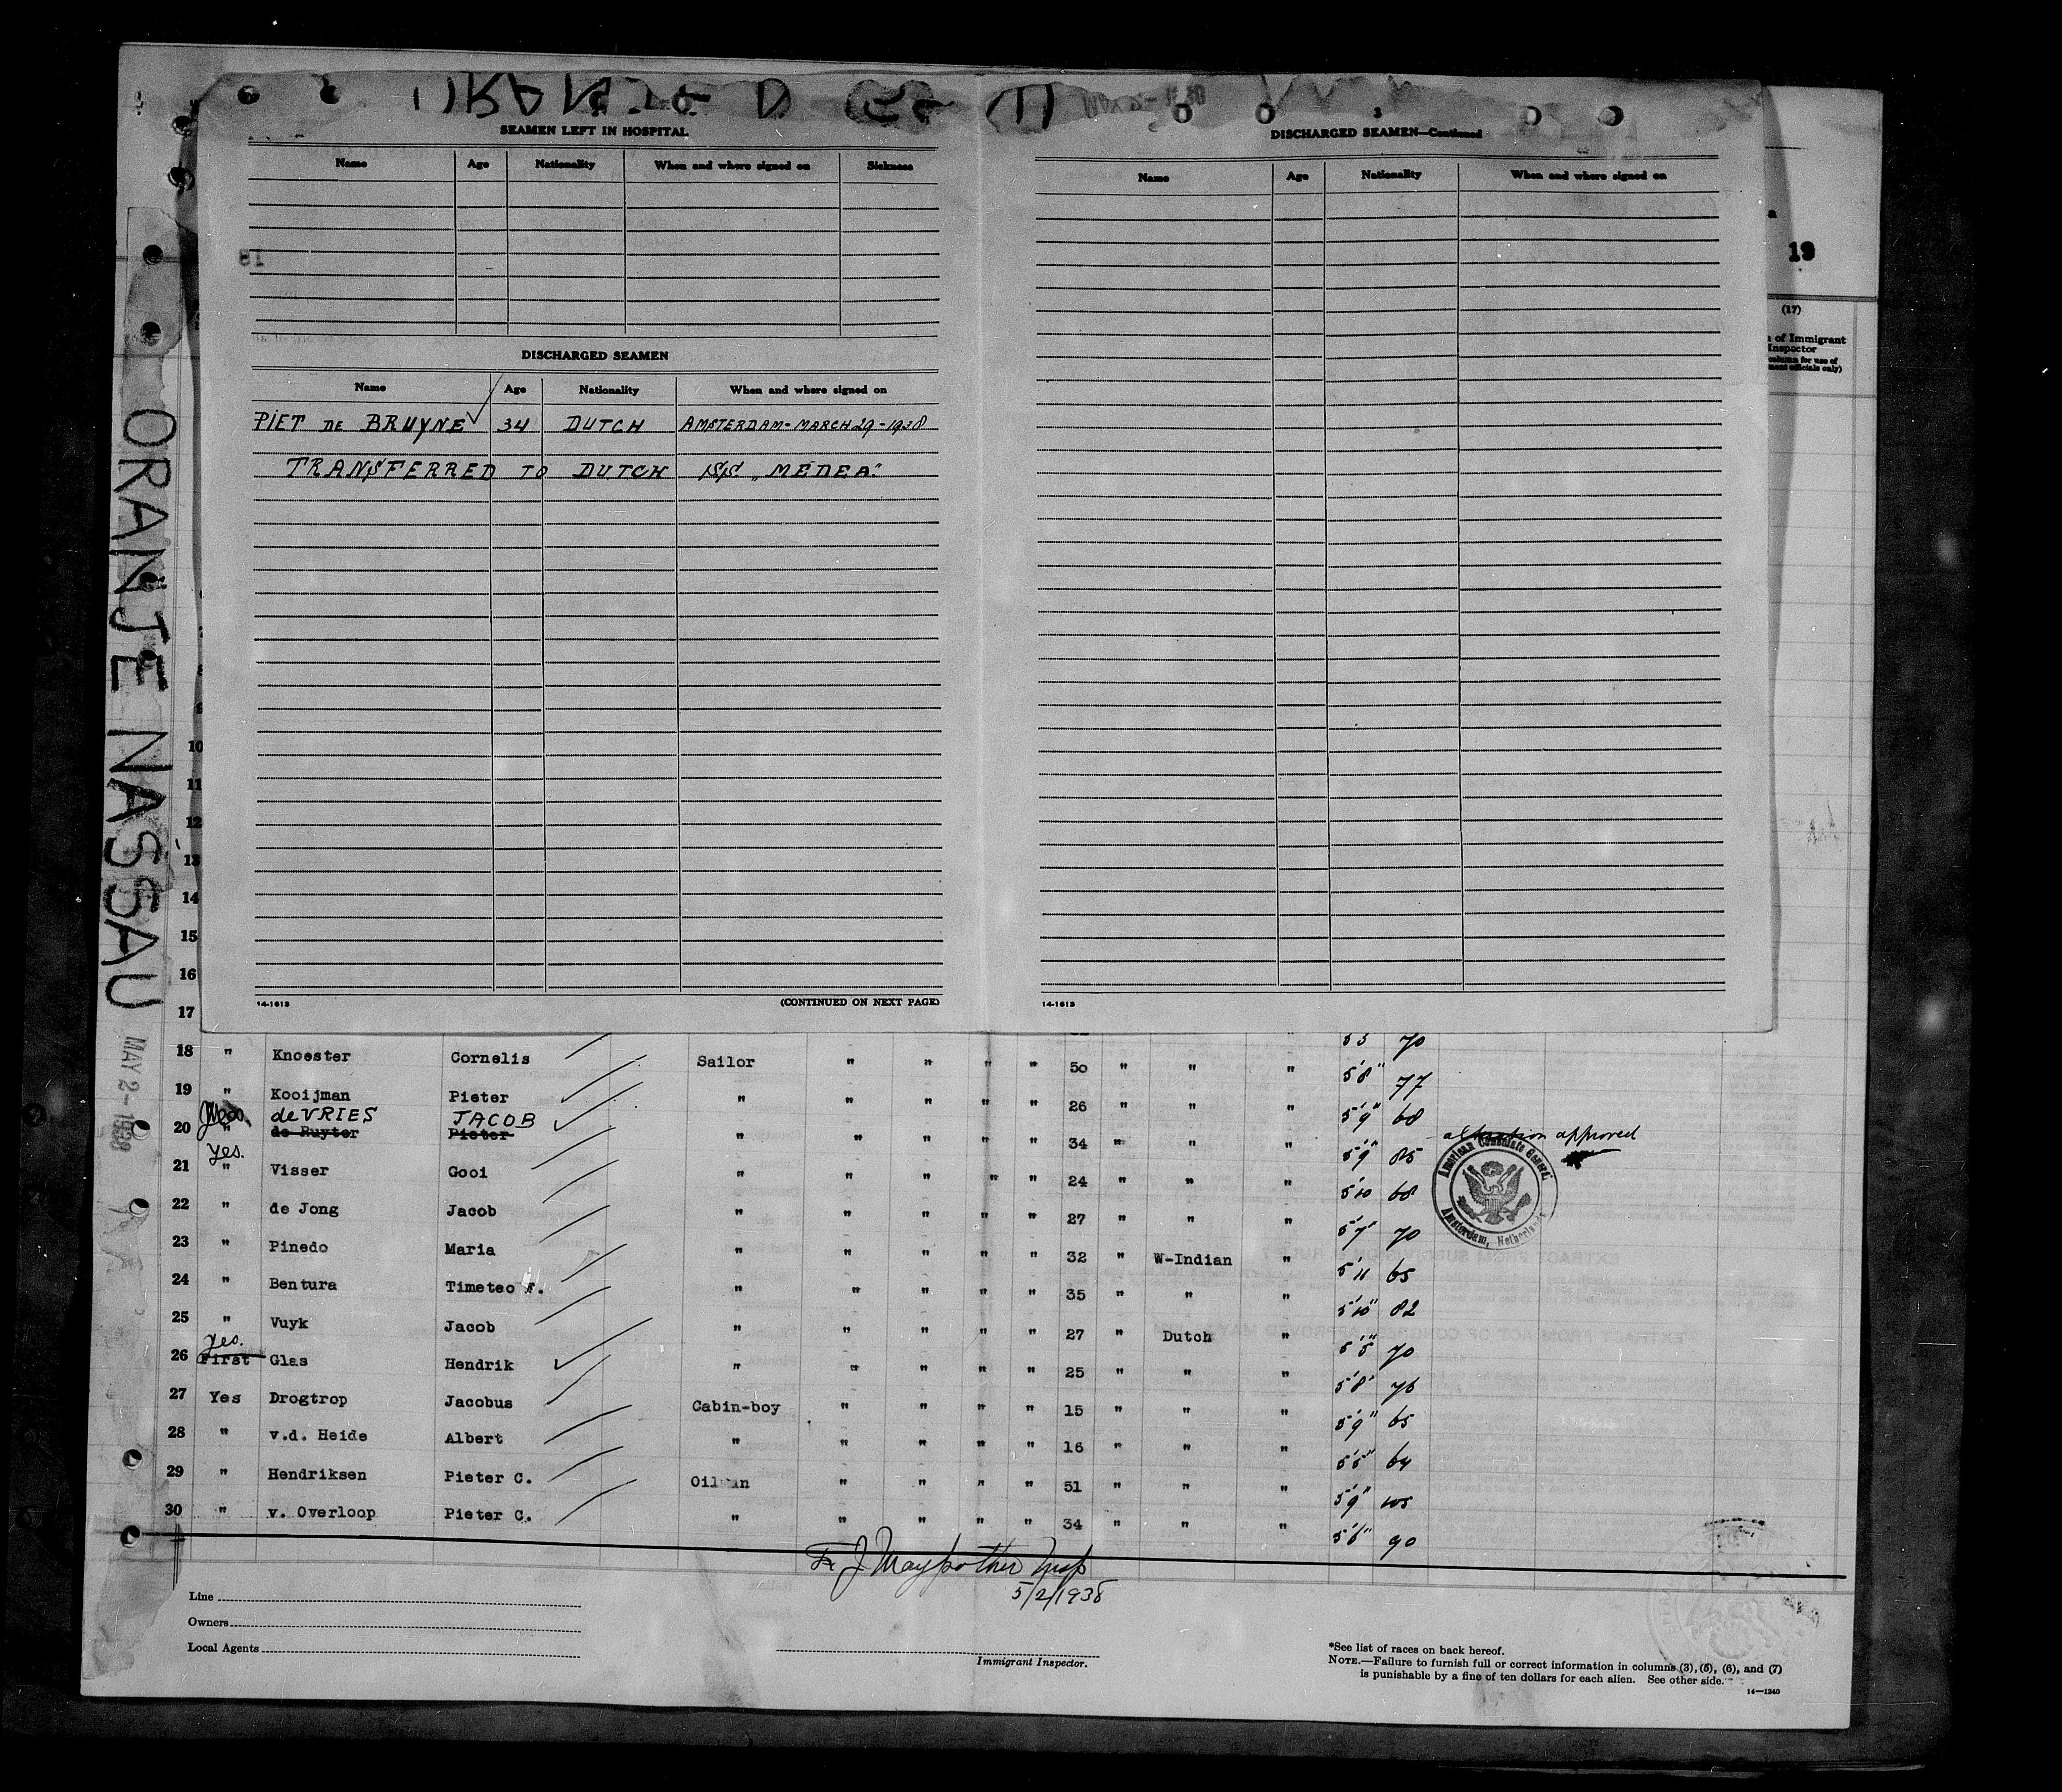 SEAMEN LEFT IN HOSPITAL
Name Age Nationality When and where signed on Sickness
DISCHARGED SEAMEN
Name Age Nationality When and where signed on
PIET DE BRUYNE 34 DUTCH AMSTERDAM - MARCH 29 - 1938
TRANSFERRED TO DUTCH SS. "MEDEA"
14-1613 (CONTINUED ON NEXT PAGE)
3
DISCHARGED SEAMEN—Continued
Name Age Nationality When and where signed on
14-1613
19
(17)
of Immigrant
Inspector
column for use of
officials only)
ORANJE NASSAU
MAY 2 - 1938
10
11
12
13
14
15
16
17 70
18 " Knoester Cornelis Sailor " " " " 50 " " " 5'8" 77
19 " Kooijman Pieter " " " " " 26 " " " 5'9" 68
deVRIES JACOB
20 " de Ruyter Pieter " " " " " 34 " " " 5'9" 85 approved
Yes.
21 " Visser Gooi " " " " " 24 " " " 5'10 68
22 " de Jong Jacob " " " " " 27 " " " 5'7" 70
23 " Pinedo Maria " " " " " 32 " W-Indian " 5'11 65
24 " Bentura Timeteo F. " " " " " 35 " " " 5'10" 82
25 " Vuyk Jacob " " " " " 27 " Dutch " 5'5" 70
Yes.
26 First Glas Hendrik " " " " " 25 " " " 5'8" 76
27 Yes Drogtrop Jacobus Cabin-boy " " " " 15 " " " 5'9" 65
28 " v.d. Heide Albert " " " " " 16 " " " 5'5" 64
29 " Hendriksen Pieter C. " " " " 51 " " " 5'9" 105
30 " v. Overloop Pieter C. " " " " " 34 " " " 5'6" 90
American Consulate General
Amsterdam, Netherlands
5/2/1938
Line
Owners
Local Agents
Immigrant Inspector.
*See list of races on back hereof.
NOTE.—Failure to furnish full or correct information in columns (3), (5), (6), and (7)
is punishable by a fine of ten dollars for each alien. See other side.
14—1240